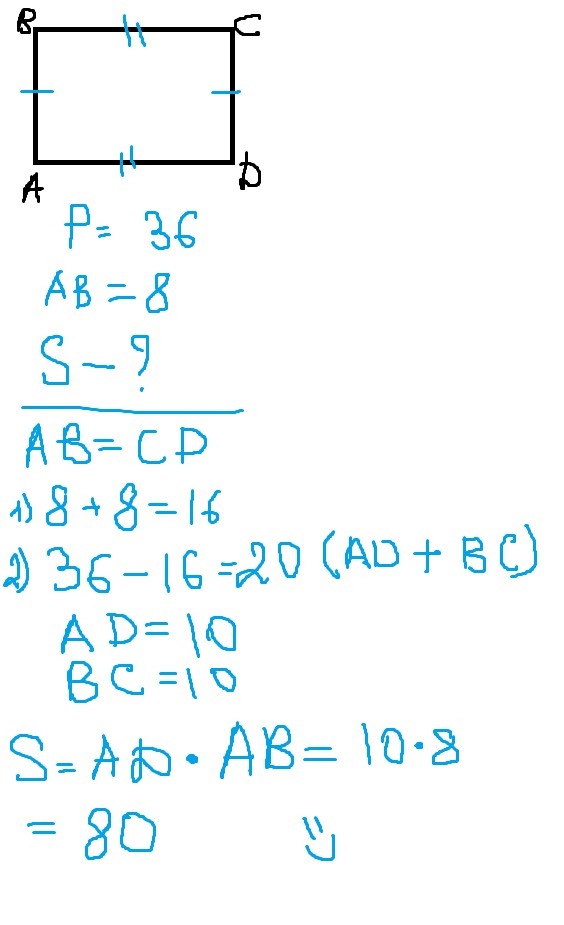 B C
A D
P= 36
AB = 8
S – ?
AB = CD
1) 8 + 8 = 16
2) 36 – 16 = 20 (AD + BC)
AD = 10
BC = 10
S = AD · AB = 10 · 8
= 80 :)